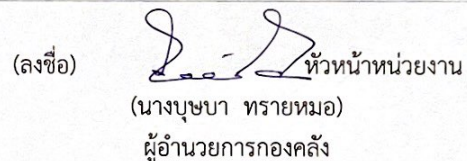 (ลงชื่อ) หัวหน้าหน่วยงาน
(นางบุษบา ทรายหมอ)
ผู้อำนวยการกองคลัง